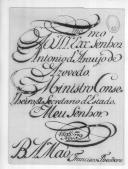 Ill.mo
e Ex.mo Senhor
Antonio d'Araujo de
Azevedo
Ministro Conse-
lheiro Secretario d'Estado
Meu Senhor
B. A. Mão
Francisco